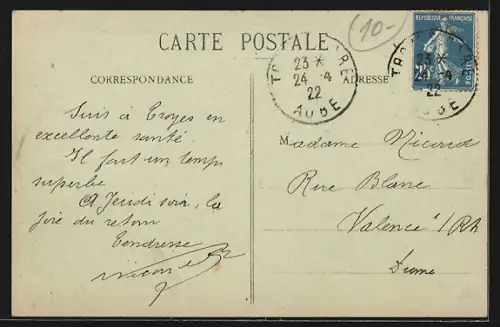 10-
CARTE POSTALE
CORRESPONDANCE
ADRESSE
RÉPUBLIQUE FRANÇAISE
POSTES
25
23 *
24 -4
22
AUBE
23 *
-4
22
Suis à Troyes en
excellente santé.
Il fait un temps
superbe
A Jeudi soir, la
joie du retour
Tendresse
Madame Nicoud
Rue Blanc
Valence s/Rh
Drome